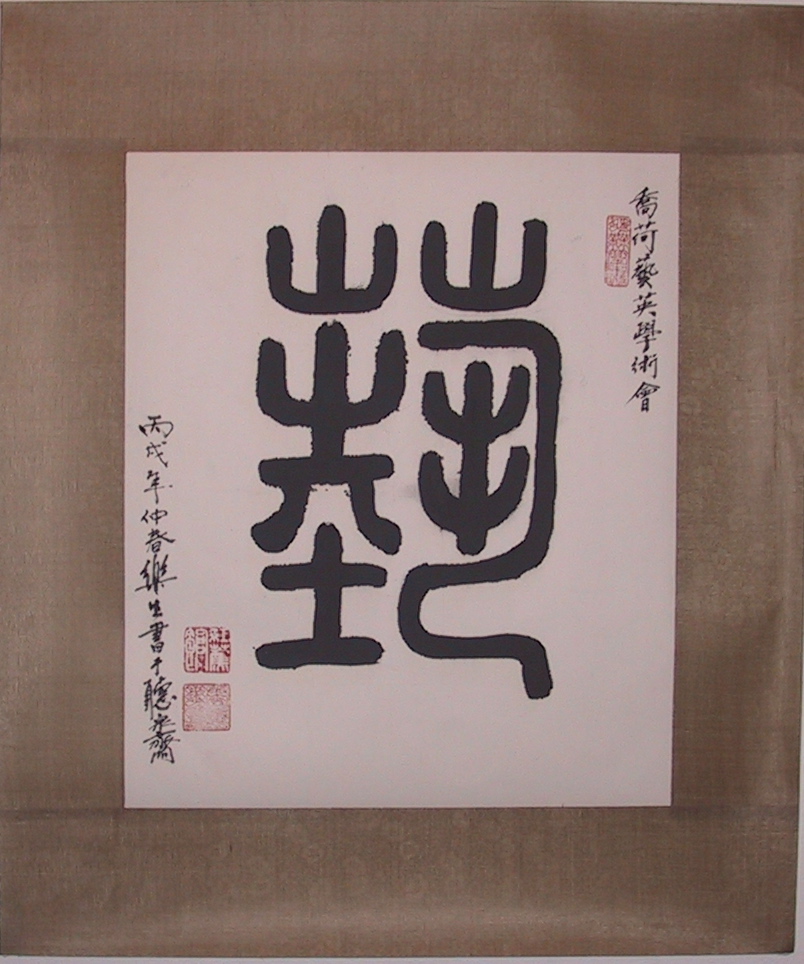 喬荷藝英學術會
藝
丙戌年仲春樂生書于聽泉齋